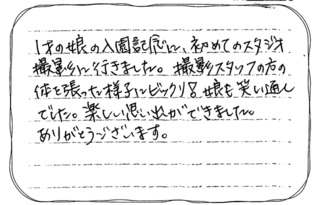 1才の娘の入園記念に、初めてのスタジオ
撮影に行きました。撮影スタッフの方の
体を張った様子にビックリ!!娘も笑い通し
でした。楽しい思い出ができました。
ありがとうございます。